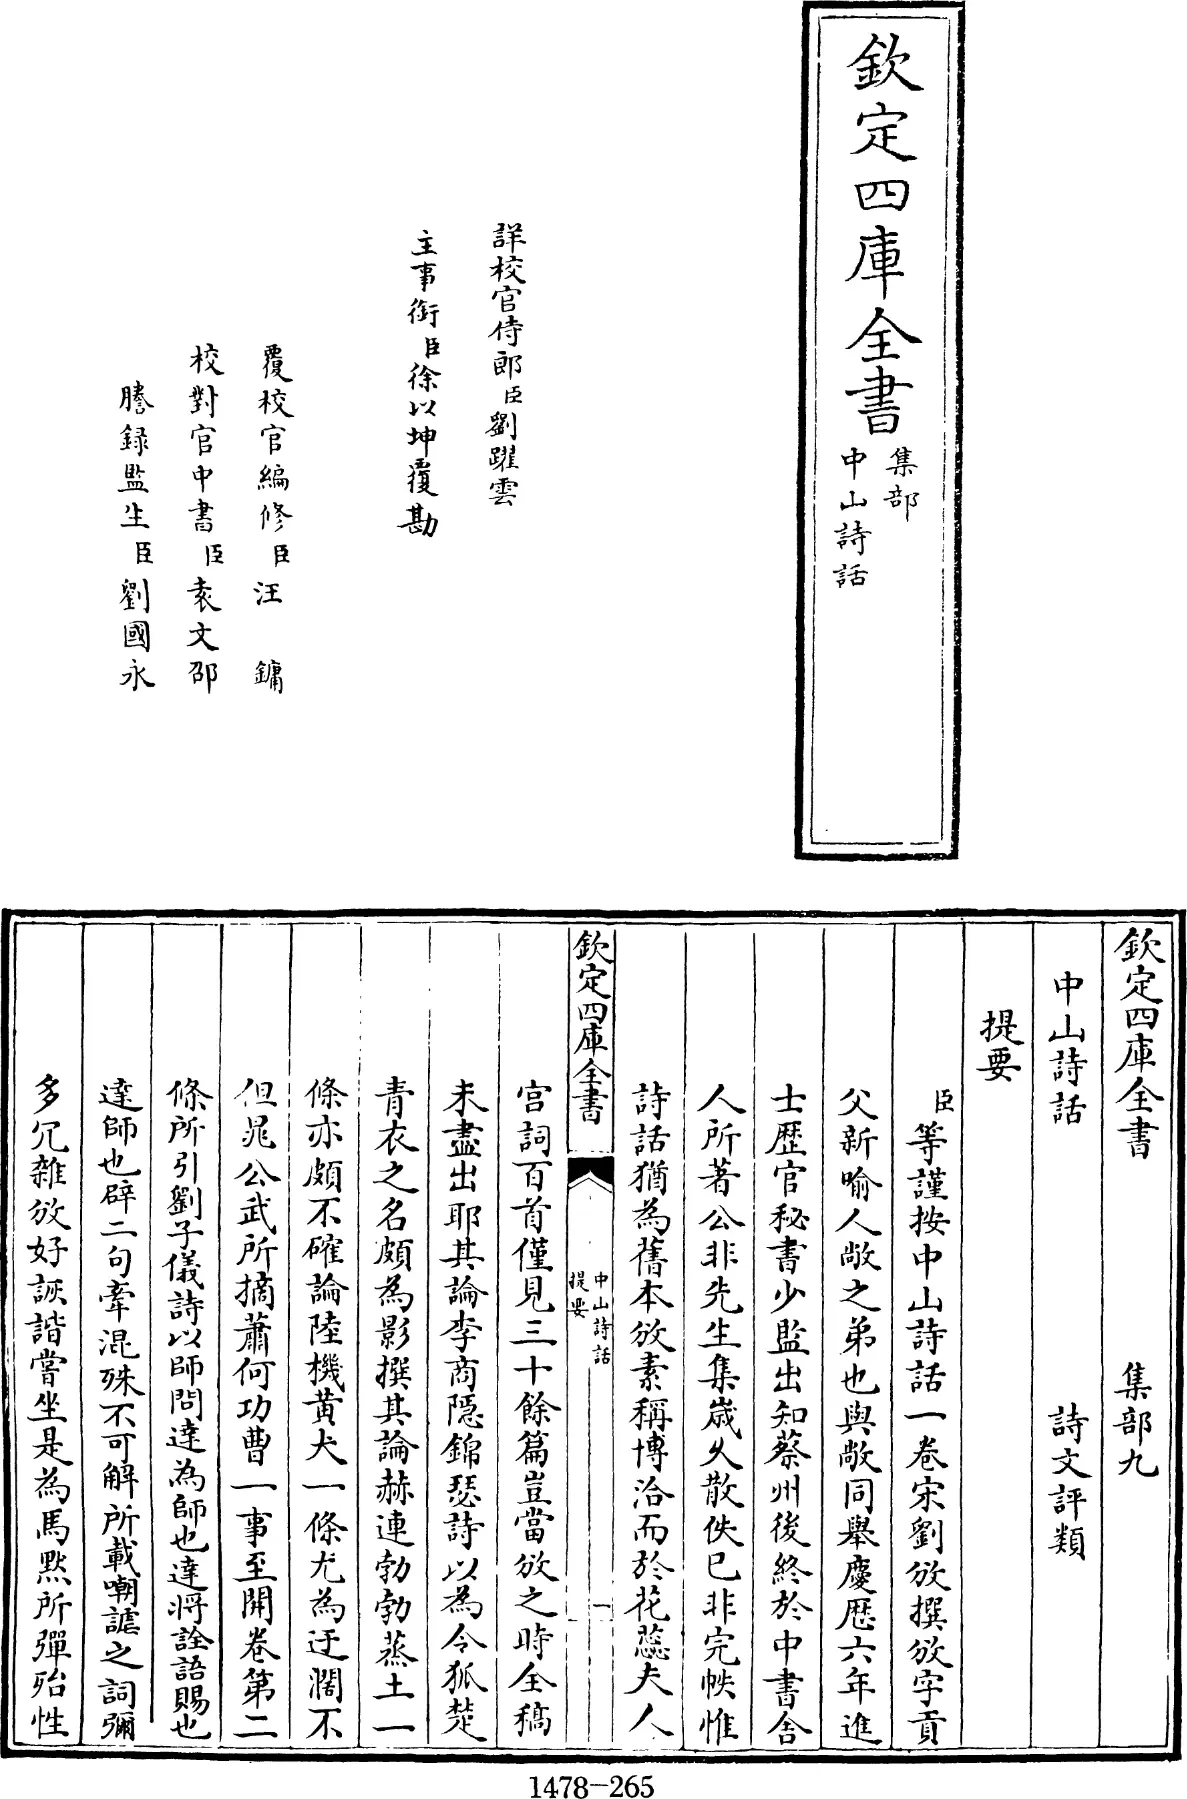 欽定四庫全書
集部
中山詩話
詳校官侍郎臣劉躍雲
主事銜臣徐以坤覆勘
覆校官編修臣汪鏞
校對官中書臣袁文邵
謄錄監生臣劉國永
欽定四庫全書 集部九
中山詩話 詩文評類
提要
臣等謹按中山詩話一卷宋劉攽撰攽字貢
父新喻人敞之弟也與敞同舉慶歴六年進
士歴官秘書少監出知蔡州後終於中書舍
人所著公非先生集嵗久散佚已非完帙惟
詩話猶為舊本攽素稱博洽而於花蕊夫人
欽定四庫全書
中山詩話
提要
一
宫詞百首僅見三十餘篇豈當攽之時全稿
未盡出耶其論李商隱錦瑟詩以為令狐楚
青衣之名頗為影撰其論赫連勃勃蒸土一
條亦頗不確論陸機黄犬一條尤為迂濶不
但晁公武所摘蕭何功曹一事至開卷第二
條所引劉子儀詩以師問達為師也達將詮語賜也
達師也辟二句牽混殊不可解所載嘲謔之詞彌
多冗雜攽好詼諧嘗坐是為馬黙所彈殆性
1478-265